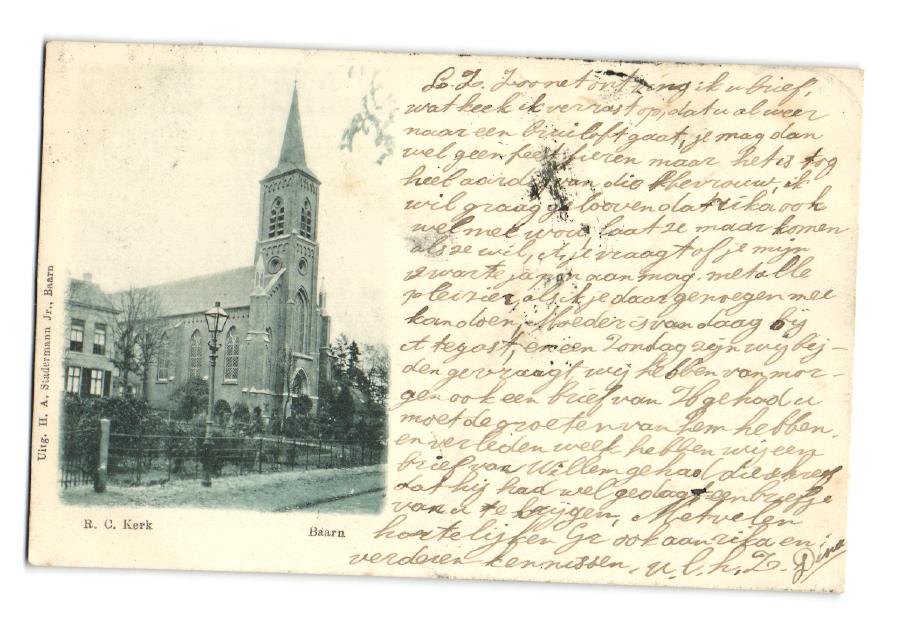 L. Z. Zoo net ontving ik u brief,
wat keek ik verrast op, dat u al weer
naar een bruiloft gaat, je mag dan
wel geen feest vieren maar het is tog
heel aardig van die vrouw, ik
wil graag gelooven dat rika ook
wel mee wou laat ze maar komen
als ze wil, A, je vraagt of je mijn
zwarte japon aan mag. met alle
pleizier, als ik je daar genoegen mee
kan doen, Moeder is van daag bij
A te gast, en een Zondag zijn wij bij-
den gevraagt wij hebben van mor-
gen ook een brief van H gehad u
moet de groeten van hem hebben,
en verleden week hebben wij een
brief van Willem gehad die schreef
dat hij had wel gedagt een briefje
van u te krygen, Met velen
hartelijken Gr ook aan rika en
verderen kennissen, u. l. h. Z. Dina
Uitg. H. A. Stadermann Jr., Baarn
R. C. Kerk
Baarn